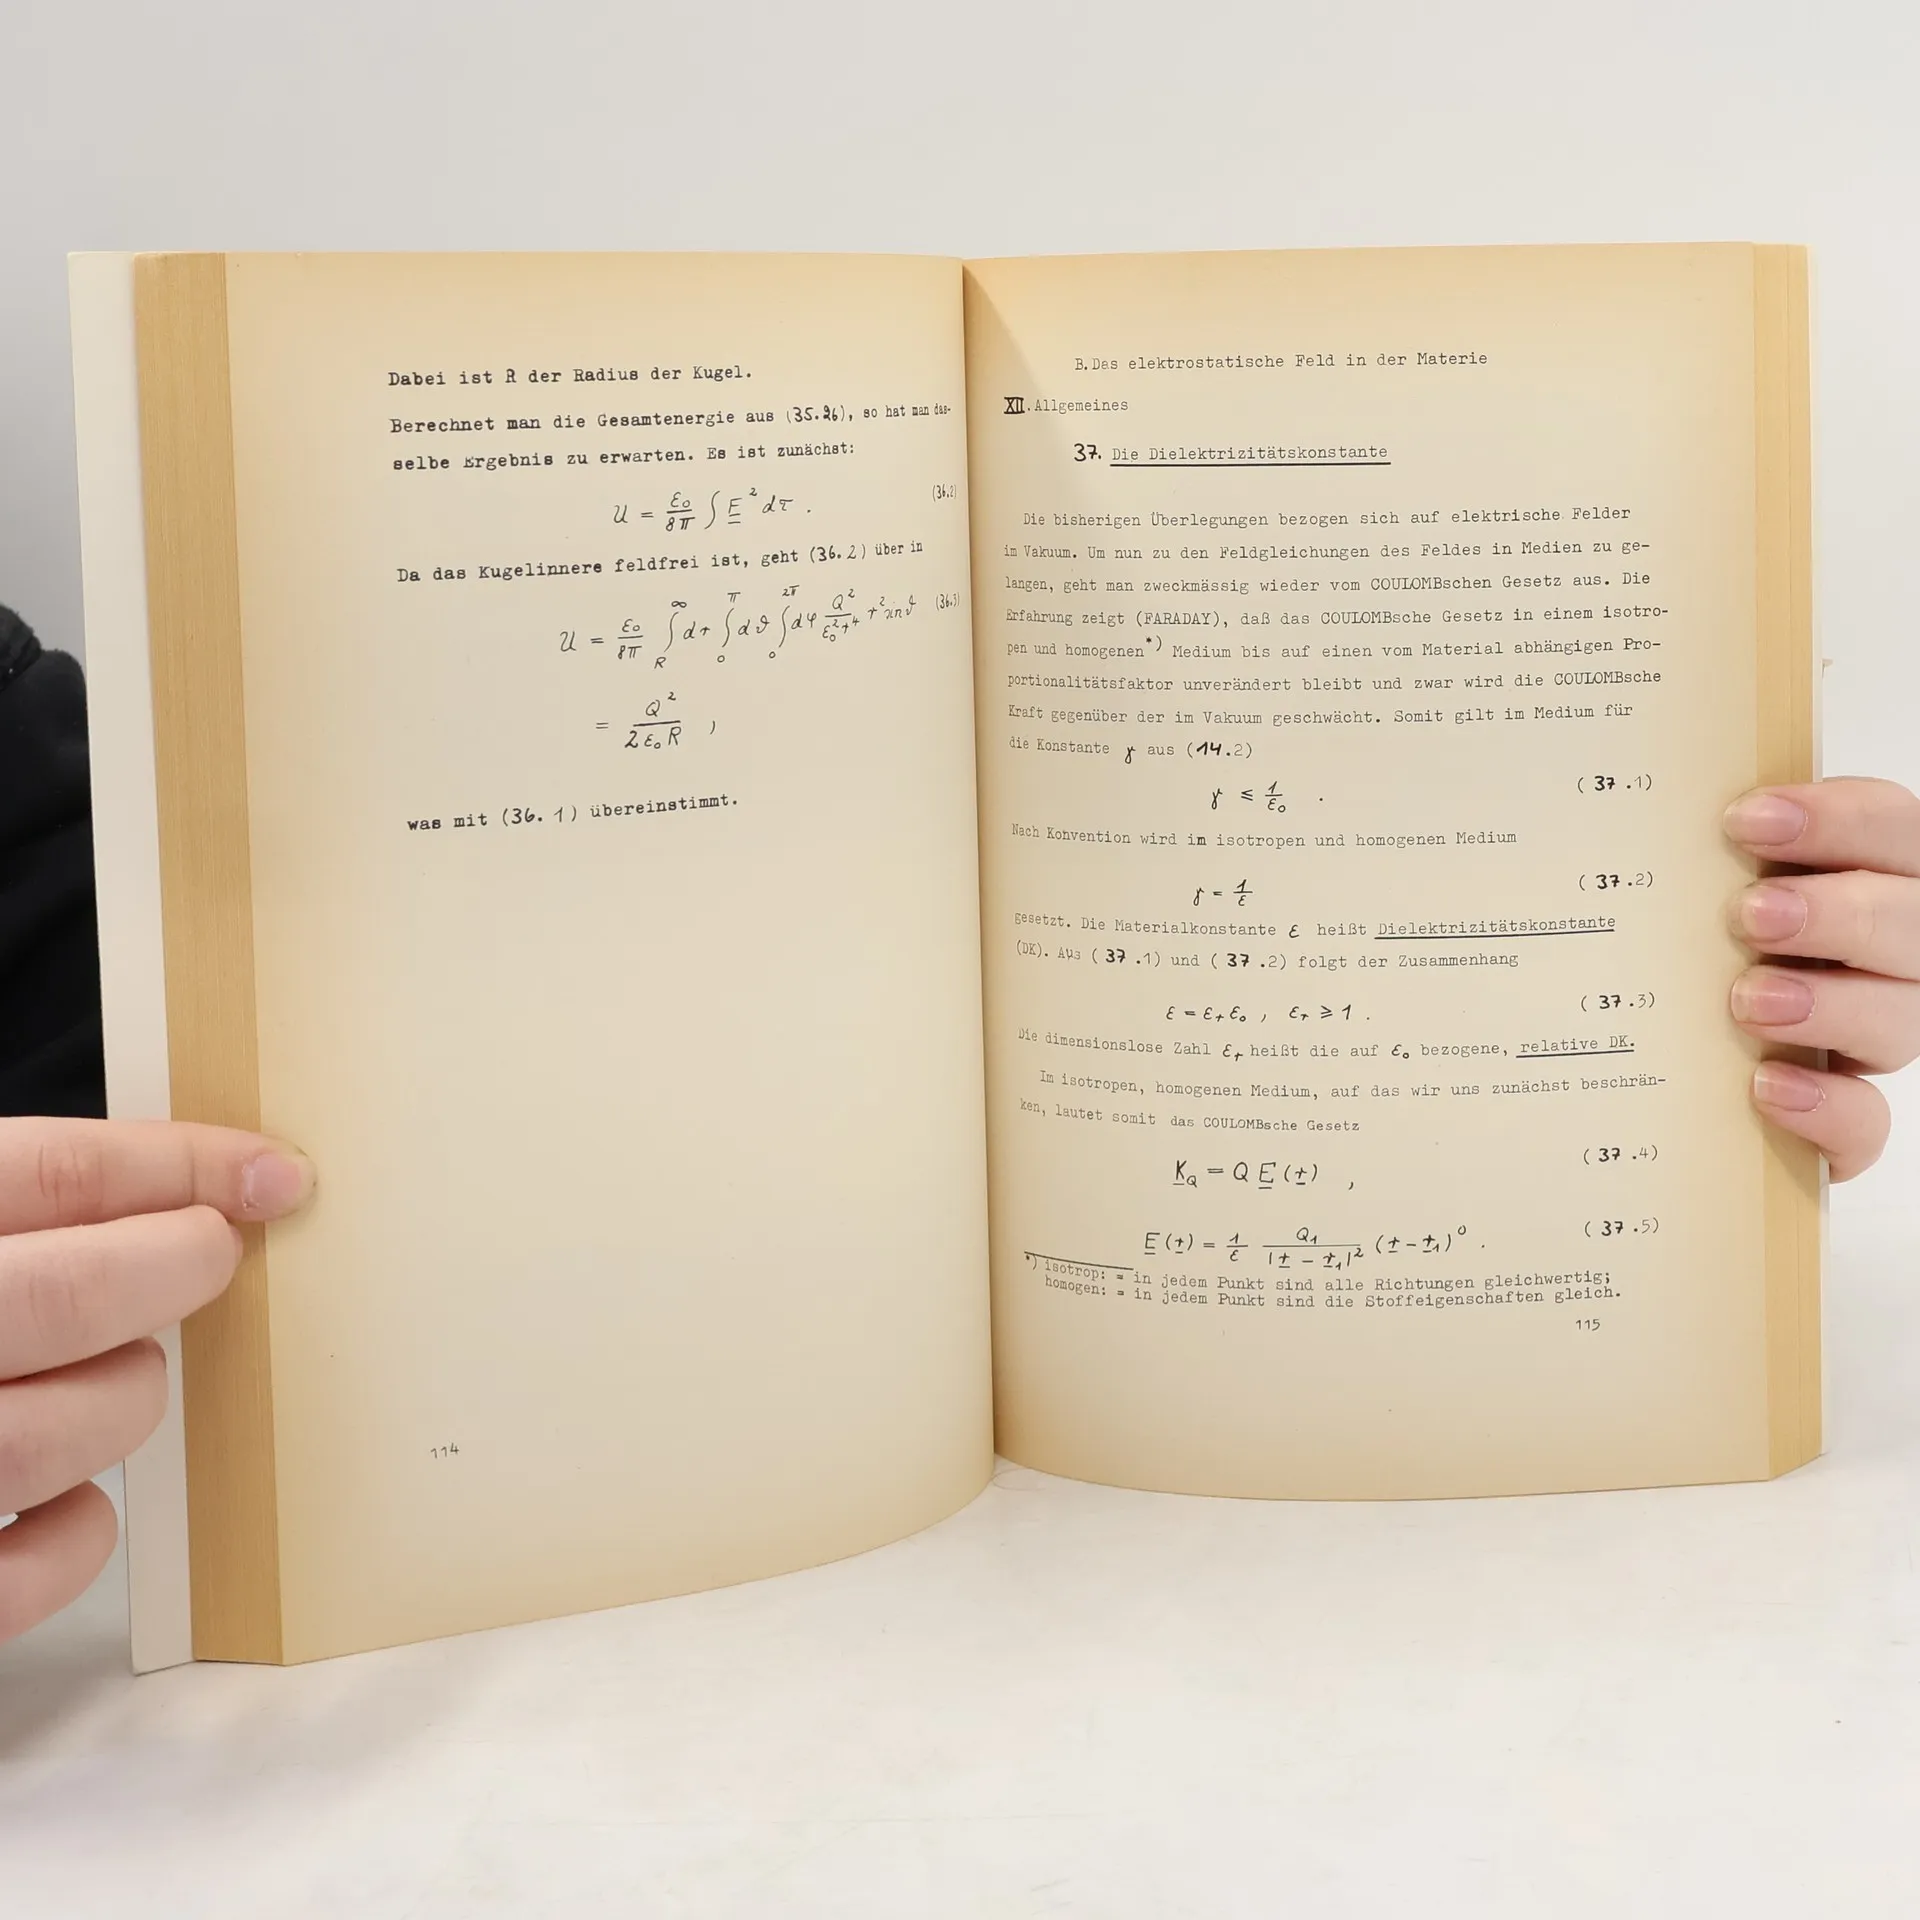 Dabei ist R der Radius der Kugel.
Berechnet man die Gesamtenergie aus (35.26), so hat man das-
selbe Ergebnis zu erwarten. Es ist zunächst:
U = ε₀/8π ∫ E² dτ . (36.2)
Da das Kugelinnere feldfrei ist, geht (36.2) über in
U = ε₀/8π ∫_R^∞ dr ∫_0^π dϑ ∫_0^2π dφ Q²/(ε₀² r⁴) r² sin ϑ (36.3)
= Q²/(2ε₀R) ,
was mit (36.1) übereinstimmt.
114
B.Das elektrostatische Feld in der Materie
XII.Allgemeines
37. Die Dielektrizitätskonstante
Die bisherigen Überlegungen bezogen sich auf elektrische Felder
im Vakuum. Um nun zu den Feldgleichungen des Feldes in Medien zu ge-
langen, geht man zweckmässig wieder vom COULOMBschen Gesetz aus. Die
Erfahrung zeigt (FARADAY), daß das COULOMBsche Gesetz in einem isotro-
pen und homogenen*) Medium bis auf einen vom Material abhängigen Pro-
portionalitätsfaktor unverändert bleibt und zwar wird die COULOMBsche
Kraft gegenüber der im Vakuum geschwächt. Somit gilt im Medium für
die Konstante γ aus (14.2)
γ ≤ 1/ε₀ . (37.1)
Nach Konvention wird im isotropen und homogenen Medium
γ = 1/ε (37.2)
gesetzt. Die Materialkonstante ε heißt Dielektrizitätskonstante
(DK). Aus (37.1) und (37.2) folgt der Zusammenhang
ε = εᵣ ε₀ , εᵣ ≥ 1 . (37.3)
Die dimensionslose Zahl εᵣ heißt die auf ε₀ bezogene, relative DK.
Im isotropen, homogenen Medium, auf das wir uns zunächst beschrän-
ken, lautet somit das COULOMBsche Gesetz
K_Q = Q E(r) , (37.4)
E(r) = 1/ε Q₁/|r - r₁|² (r - r₁)⁰ . (37.5)
*) isotrop: = in jedem Punkt sind alle Richtungen gleichwertig;
homogen: = in jedem Punkt sind die Stoffeigenschaften gleich.
115